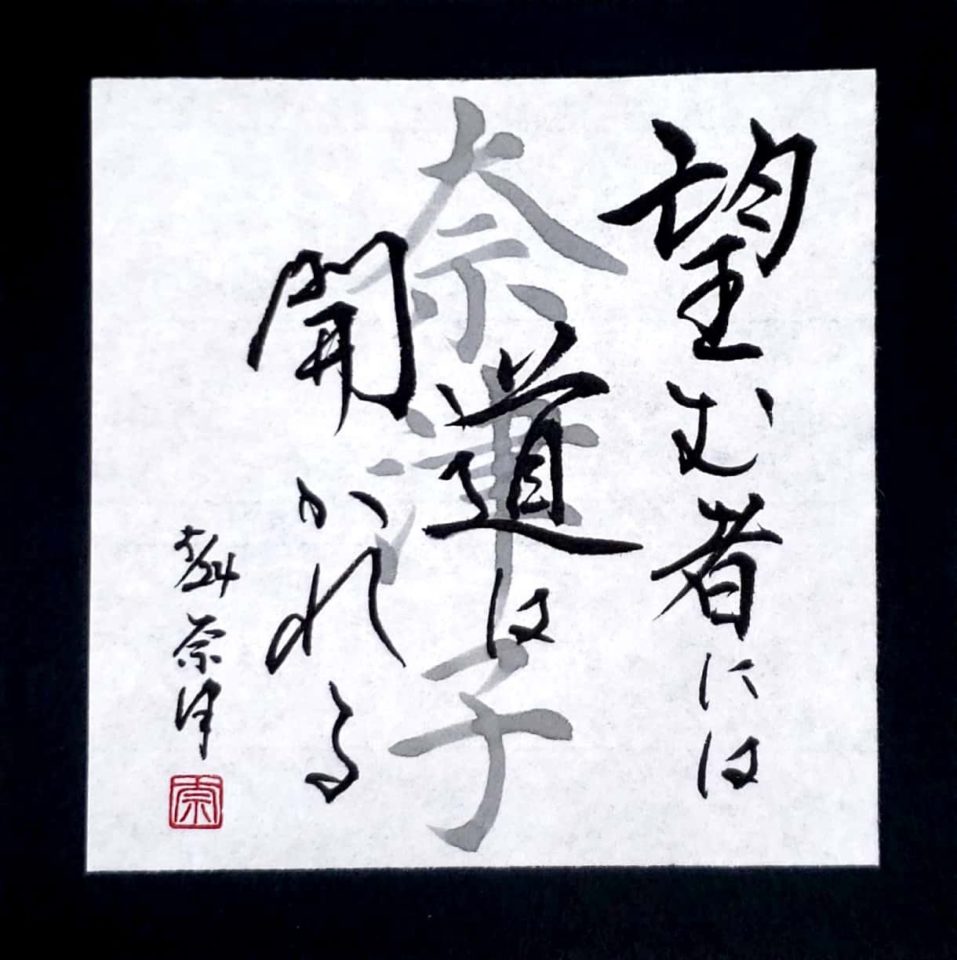 望む者には
道は
開かれる
奈津子
奈津
奈